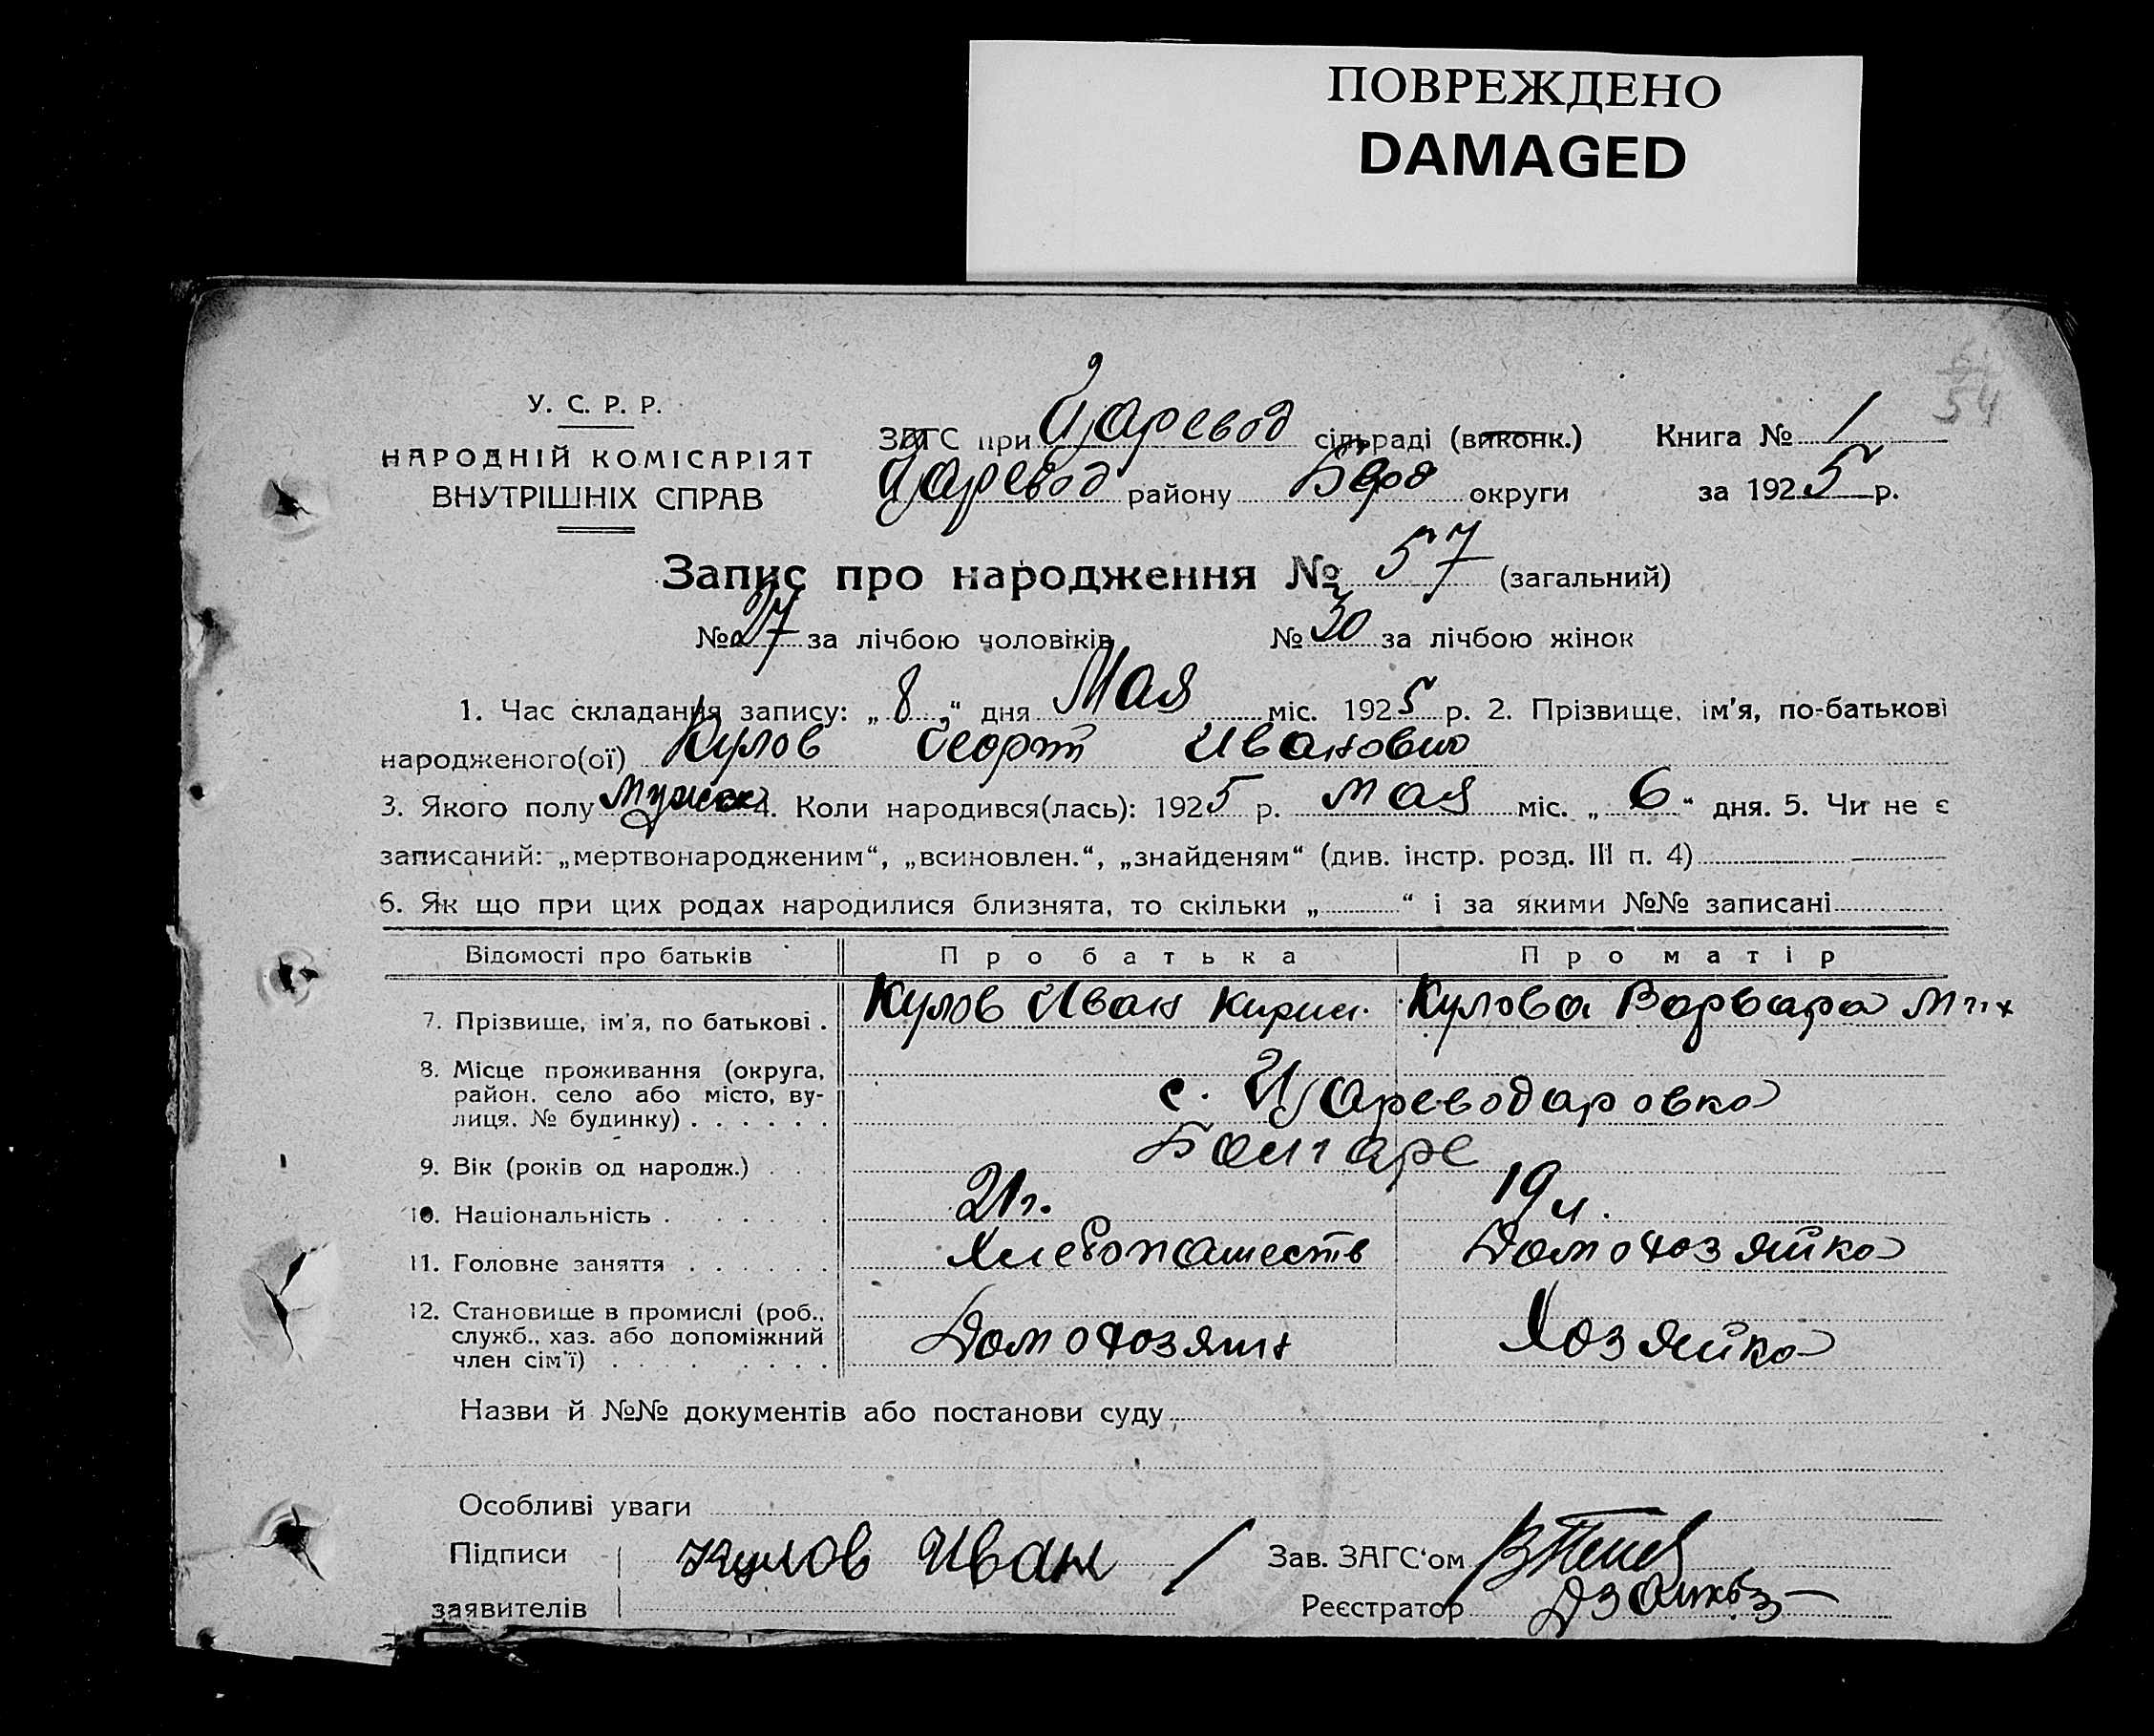 ПОВРЕЖДЕНО
DAMAGED
54
У. С. Р. Р.
НАРОДНІЙ КОМІСАРІЯТ
ВНУТРІШНІХ СПРАВ
ЗАГС при Царевод сільраді (виконк.) Книга № 1
Царевод району Берд округи за 1925 р.
Запис про народження № 57 (загальний)
№ 27 за лічбою чоловіків № 30 за лічбою жінок
1. Час складання запису: „ 8 “ дня Мая міс. 1925 р. 2. Прізвище, ім'я, по-батькові
народженого(ої) Кулов Георги Иванович
3. Якого полу Мужск 4. Коли народився(лась): 1925 р. мая міс. „ 6 “ дня. 5. Чи не є
записаний: „мертвонародженим“, „всиновлен.“, „знайденям“ (див. інстр. розд. III п. 4)
6. Як що при цих родах народилися близнята, то скільки „ “ і за якими №№ записані
Відомості про батьків Про батька Про матір
7. Прізвище, ім'я, по батькові . Кулов Иван Кирил. Кулова Варвара
8. Місце проживання (округа,
район, село або місто, ву-
лиця, № будинку) . . . . . . с. Цареводаровка
9. Вік (років од народж.) . . . Болгаре
10. Національність . . . . . . 21 г. 19 л.
11. Головне заняття . . . . . . Хлебопашеств Домохозяйка
12. Становище в промислі (роб.,
служб., хаз. або допоміжний
член сім'ї) . . . . . . . Домохозяин Хозяйка
Назви й №№ документів або постанови суду
Особливі уваги
Підписи Кулов Иван Зав. ЗАГС'ом
заявителів Реєстратор